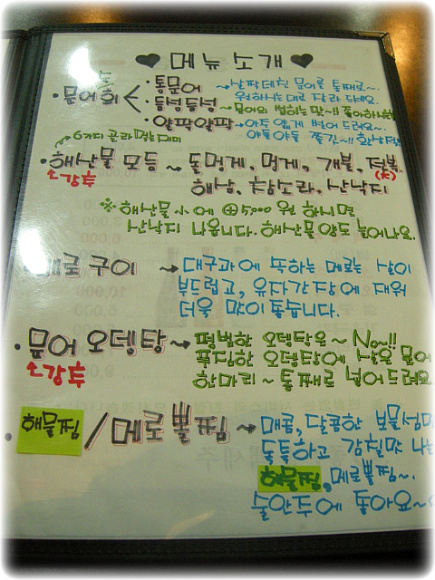 ♥ 메뉴소개 ♥
· 문어회
· 통문어 → 살짝 데친 문어를 통째로~
원하는대로 잘라 드세요.
· 듬성듬성 → 문어의 씹히는 맛~!! 좋아하시는
· 얄팍얄팍 → 아주 얇게 썰어 드려요~.
야들야들 쫄깃~!! 환상적인
→ 6가지 골라먹는재미
· 해산물 모듬 ~ 돌멍게, 멍게, 개불, 전복(大)
강추 해삼, 참소라, 산낙지
※ 해산물 小 에 ⊕5,000 원 하시면
산낙지 나옵니다. 해산물 양도 늘어나요.
메로 구이 → 대구과에 속하는 메로는 살이
부드럽고, 유자간장에 재워
더욱 맛이좋습니다.
· 문어 오뎅탕 → 평범한 오뎅탕은~ No~!!
강추 푸짐한 오뎅탕에 삶은 문어
한마리~ 통째로 넣어드려요
· 해물찜 / 메로뽈찜 → 매콤, 달콤한
톡톡하고 감칠맛 나는
해물찜, 메로뽈찜~.
술안주에 좋아요~